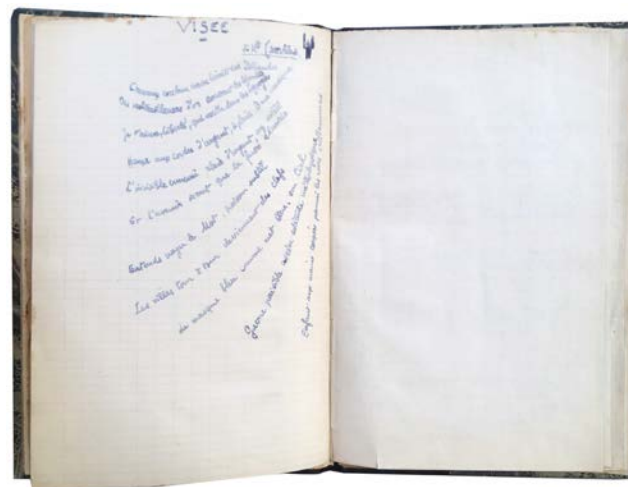 VISEE
Chevaux couleur cerise limite des Zélandes
Des mitrailleuses d'or coassent les légendes
Je t'aime, liberté, qui veilles dans les hypogées
Harpe aux cordes d'argent, ô pluie ô ma musique
L'invisible ennemi plaie d'argent au soleil
Et l'avenir secret que la fusée élucide
Entends nager le Mot, poisson subtil
Les villes tour à tour deviennent des clefs
Le masque bleu comme met Dieu, son Ciel
Guerre paisible ascèse solitude métaphysique
Enfant aux mains coupées parmi les roses oriflammes